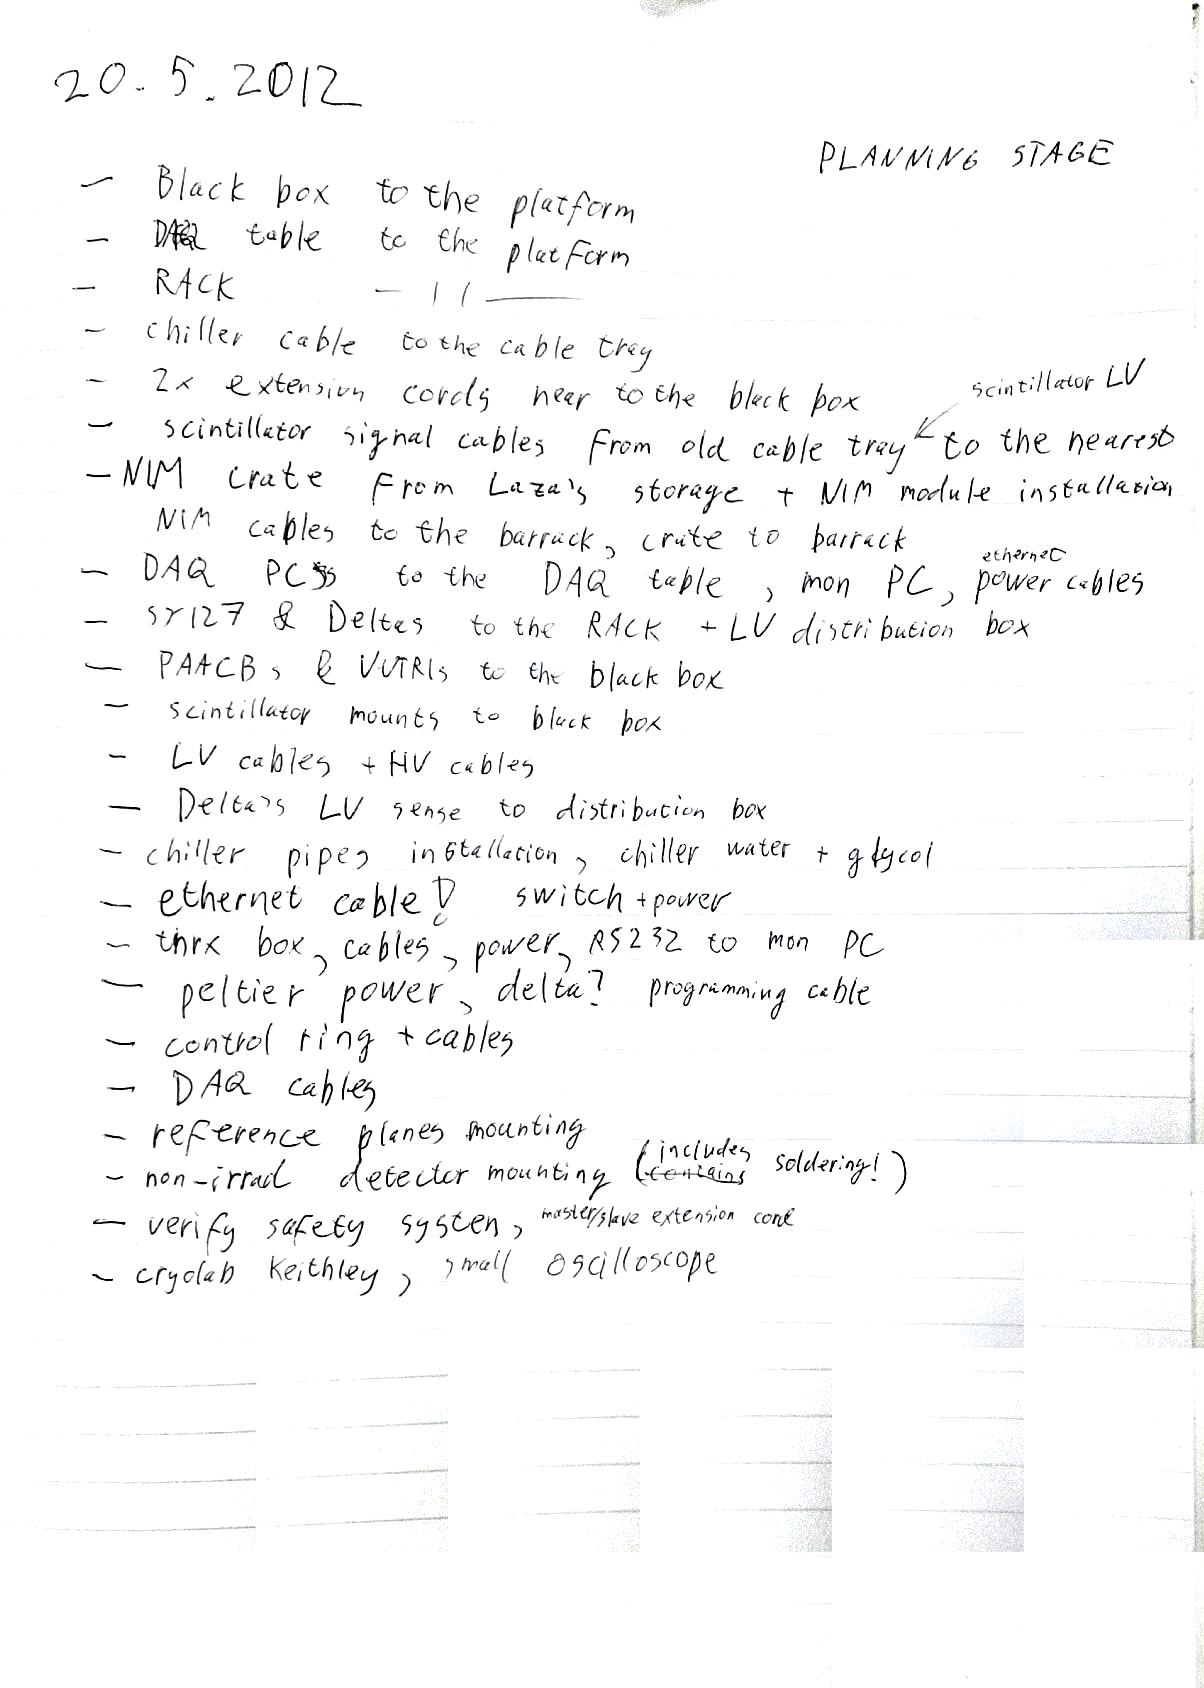 20.5.2012
PLANNING STAGE
— Black box to the platform
— DAQ table to the platform
— RACK — 11 —
— chiller cable to the cable tray
— 2x extension cords near to the black box
scintillator LV
— scintillator signal cables from old cable tray to the nearest
— NIM crate from Laza's storage + NIM module installation
NIM cables to the barrack, crate to barrack
ethernet
— DAQ PCs to the DAQ table, mon PC, power cables
— SY127 & Deltas to the RACK + LV distribution box
— PAACBs & VUTRIs to the black box
— scintillator mounts to black box
— LV cables + HV cables
— Delta's LV sense to distribution box
— chiller pipes installation, chiller water + glycol
— ethernet cable! switch + power
— thrx box, cables, power, RS232 to mon PC
— peltier power, delta? programming cable
— control ring + cables
— DAQ cables
— reference planes mounting
— non-irrad detector mounting (contains includes soldering!)
— verify safety system, master/slave extension cord
— cryolab Keithley, small oscilloscope